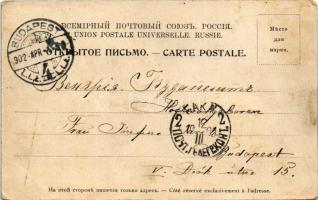 ВСЕМІРНЫЙ ПОЧТОВЫЙ СОЮЗЪ. РОССІЯ.
UNION POSTALE UNIVERSELLE. RUSSIE.
ОТКРЫТОЕ ПИСЬМО. — CARTE POSTALE.
Мѣсто
для
марки.
BUDAPEST
902 APR
4
Венгрія. Будапештъ
БАКУ
Frau
Budapest
V. Deák utca 15.
На этой сторонѣ пишется только адресъ. — Côté réservé exclusivement à l'adresse.